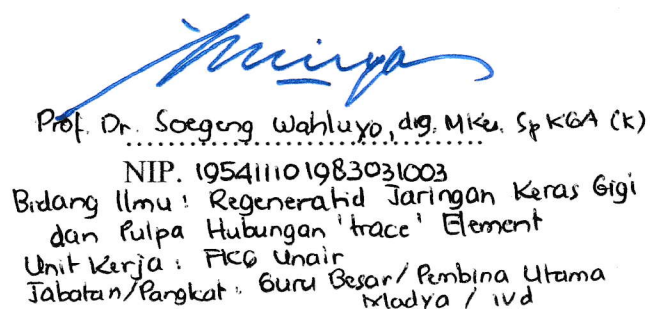 Prof. Dr. Soegeng Wahluyo, drg. MKes. SpKGA (K)
NIP. 195411101983031003
Bidang Ilmu : Regeneratid Jaringan Keras Gigi
dan Pulpa Hubungan 'trace' Element
Unit Kerja : FKG Unair
Jabatan/Pangkat : Guru Besar/ Pembina Utama
Madya / IVd